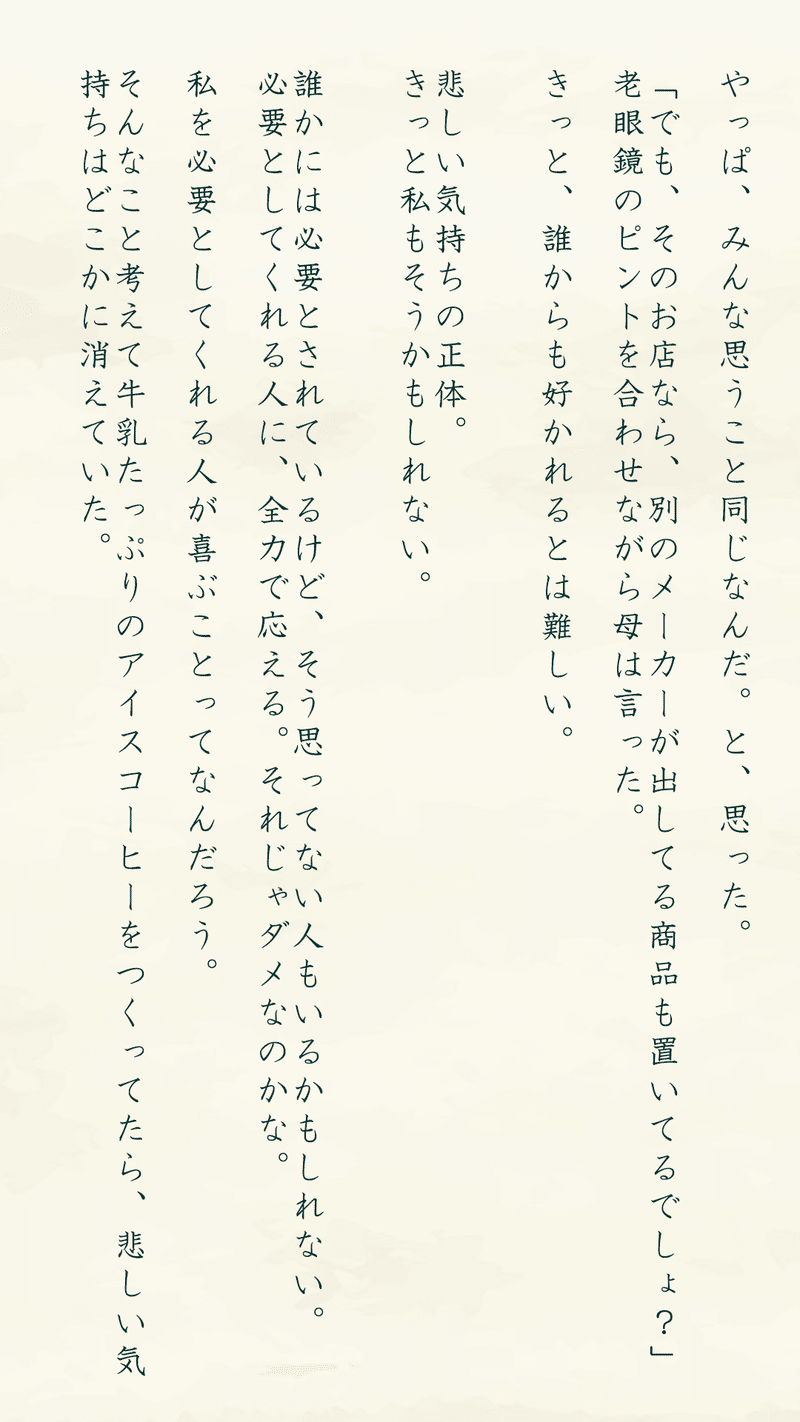 やっぱ、みんな思うこと同じなんだ。と、思った。
「でも、そのお店なら、別のメーカーが出してる商品も置いてるでしょ？」
老眼鏡のピントを合わせながら母は言った。
きっと、誰からも好かれるとは難しい。
悲しい気持ちの正体。
きっと私もそうかもしれない。
誰かには必要とされているけど、そう思ってない人もいるかもしれない。
必要としてくれる人に、全力で応える。それじゃダメなのかな。
私を必要としてくれる人が喜ぶことってなんだろう。
そんなこと考えて牛乳たっぷりのアイスコーヒーをつくってたら、悲しい気
持ちはどこかに消えていた。